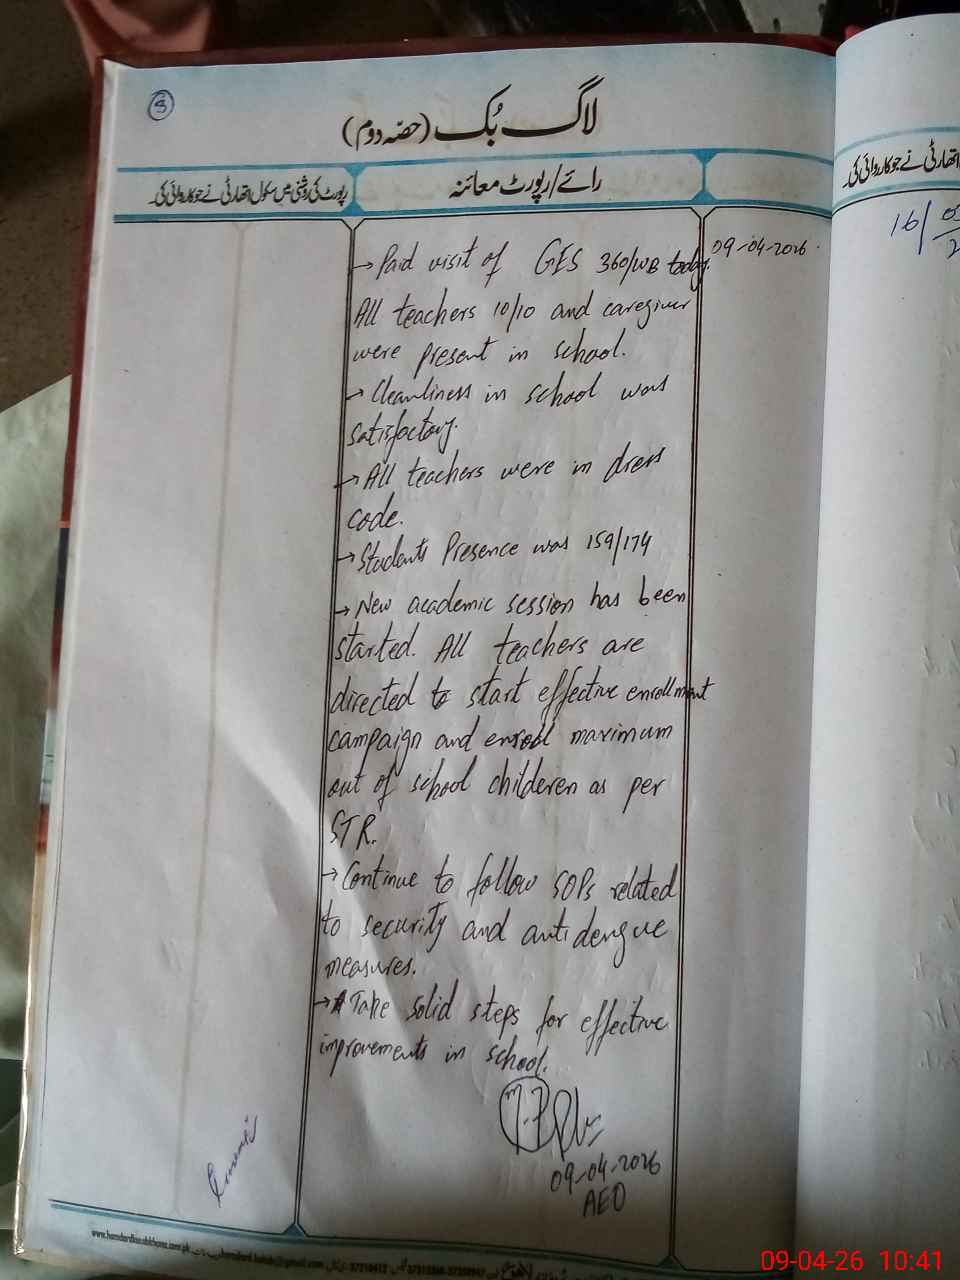 3
لاگ بُک (حصّہ دوم)
رائے/رپورٹ معائنہ
رپورٹ کی روشنی میں سکول اتھارٹی نے جو کارروائی کی
اتھارٹی نے جو کارروائی کی
16/
09-04-2026.
→ Paid visit of GES 360/WB today.
All teachers 10/10 and caregiver
were present in school.
→ Cleanliness in school was
satisfactory.
→ All teachers were in dress
code.
→ Students Presence was 159/174
→ New academic session has been
started. All teachers are
directed to start effective enrollment
campaign and enroll maximum
out of school childeren as per
STR.
→ Continue to follow SOPs related
to security and anti dengue
measures.
→ Take solid steps for effective
improvements in school.
09-04-2026
AEO
09-04-26 10:41